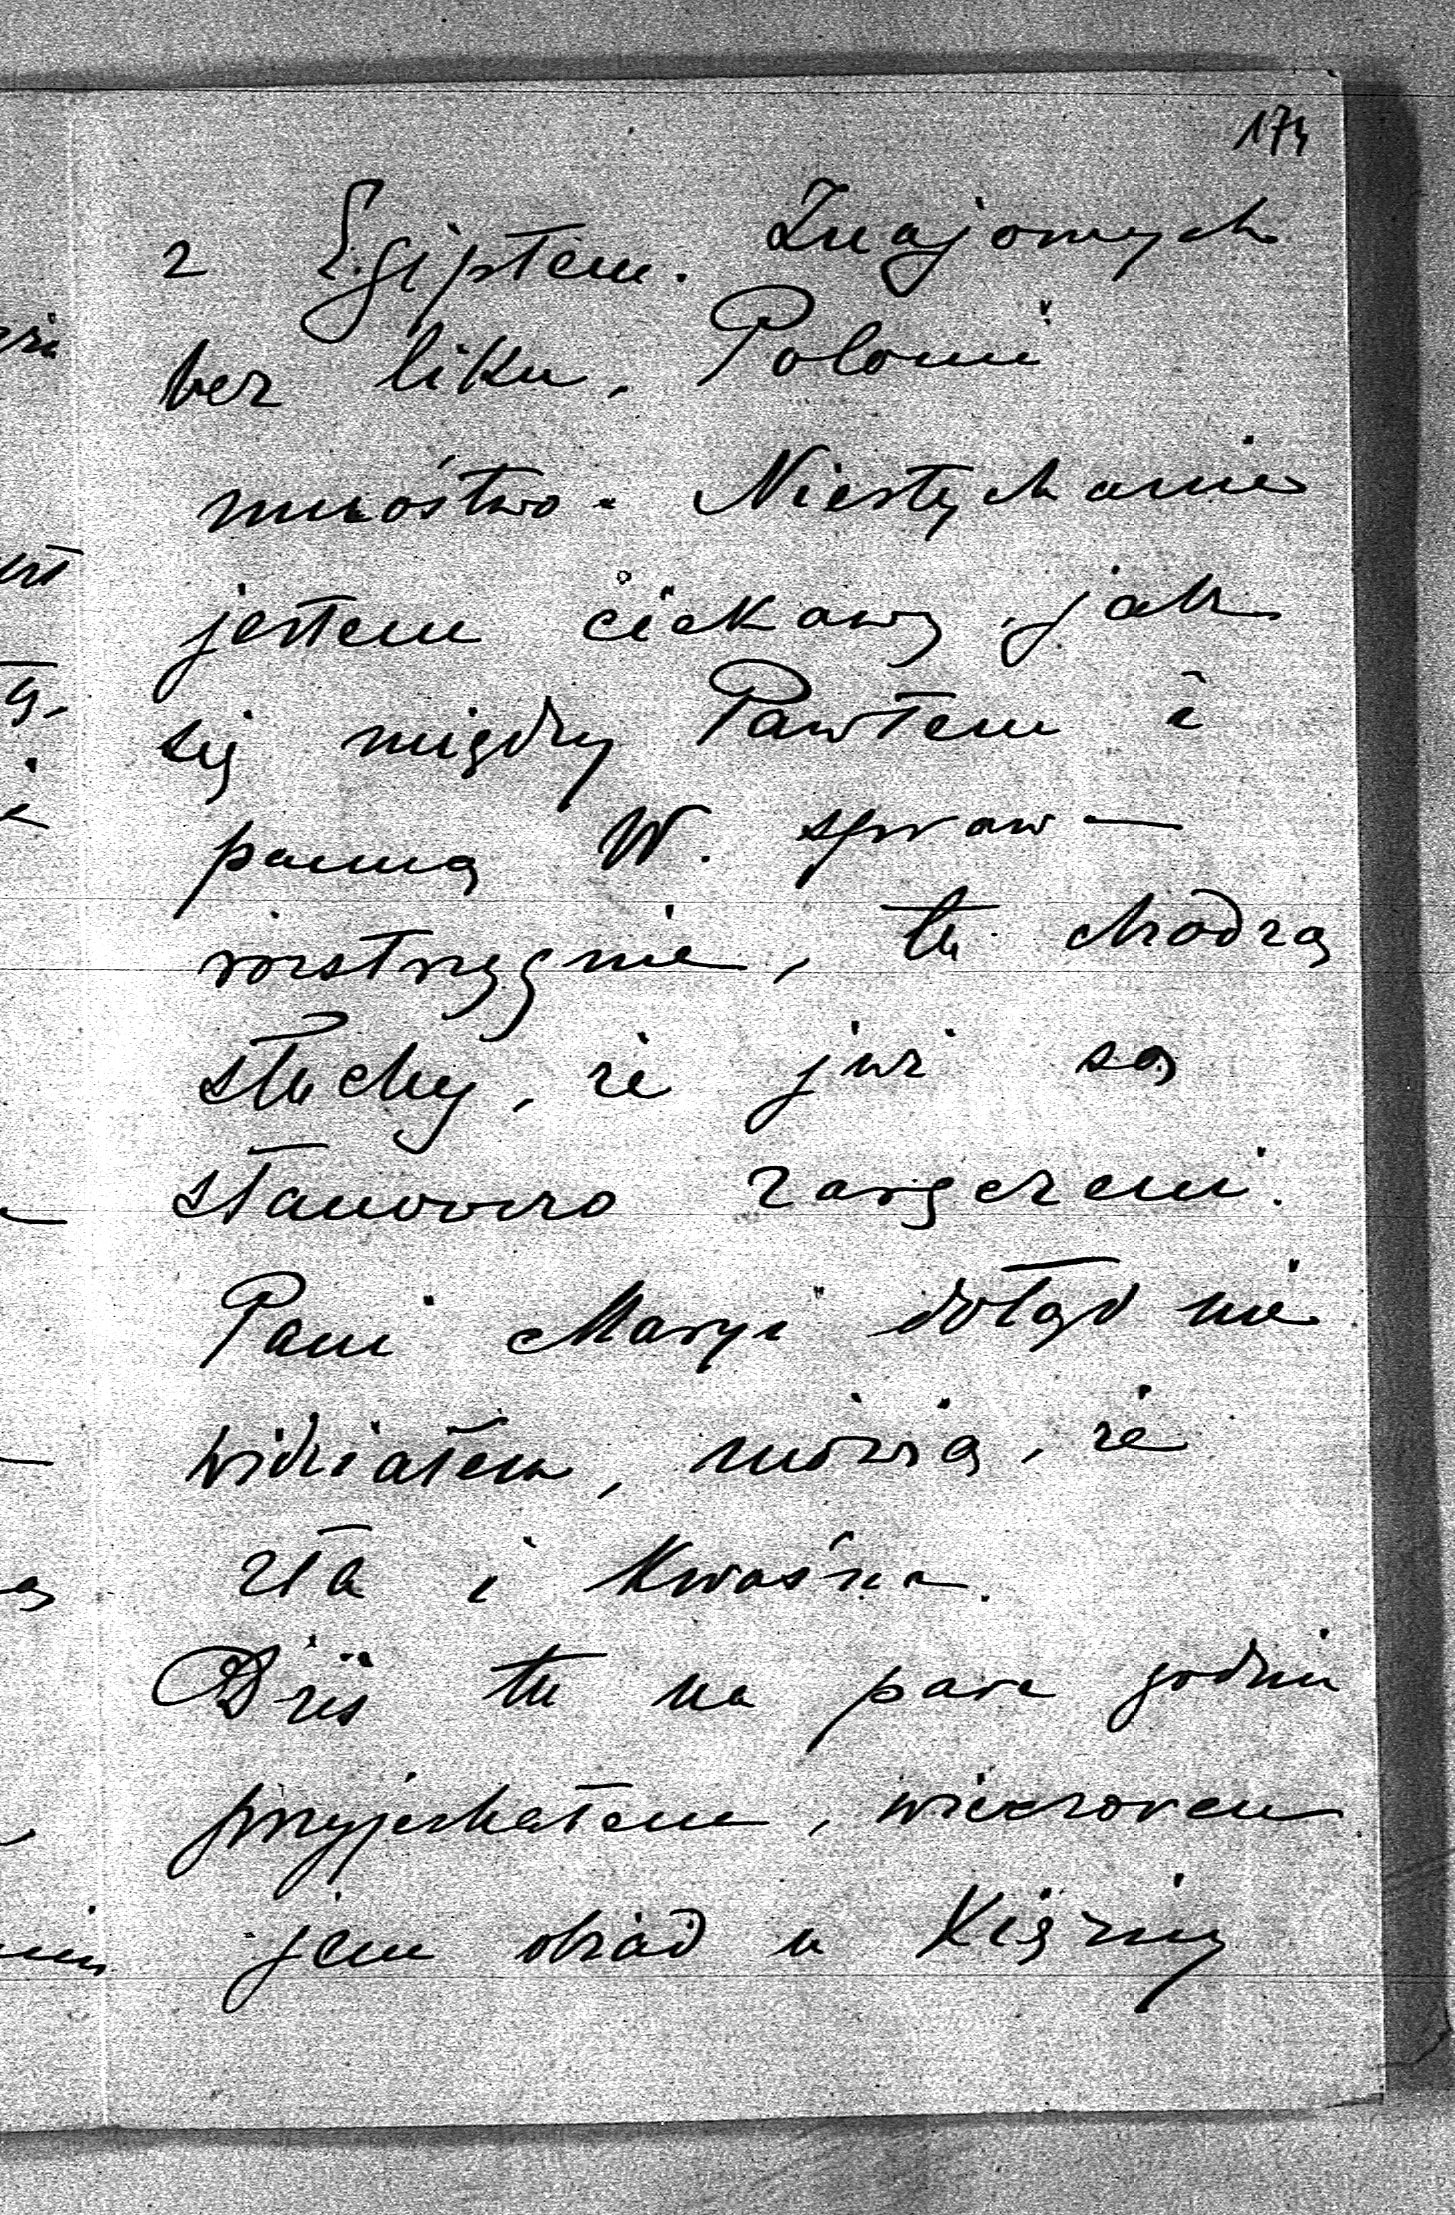 174
z Egiptem. Znajomych
bez liku, Polonii
mnóstwo. Niesłychanie
jestem ciekawy, jak
się między Pawłem i
panną W. spraw—
rozstrzygnie, tu chodzą
słuchy, że już są
stanowczo zaręczeni.
Pani Maryi dotąd nie
widziałem, mówią, że
zła i kwaśna.
Dziś tu na parę godzin
przyjechałem, wieczorem
jem obiad u Księżny